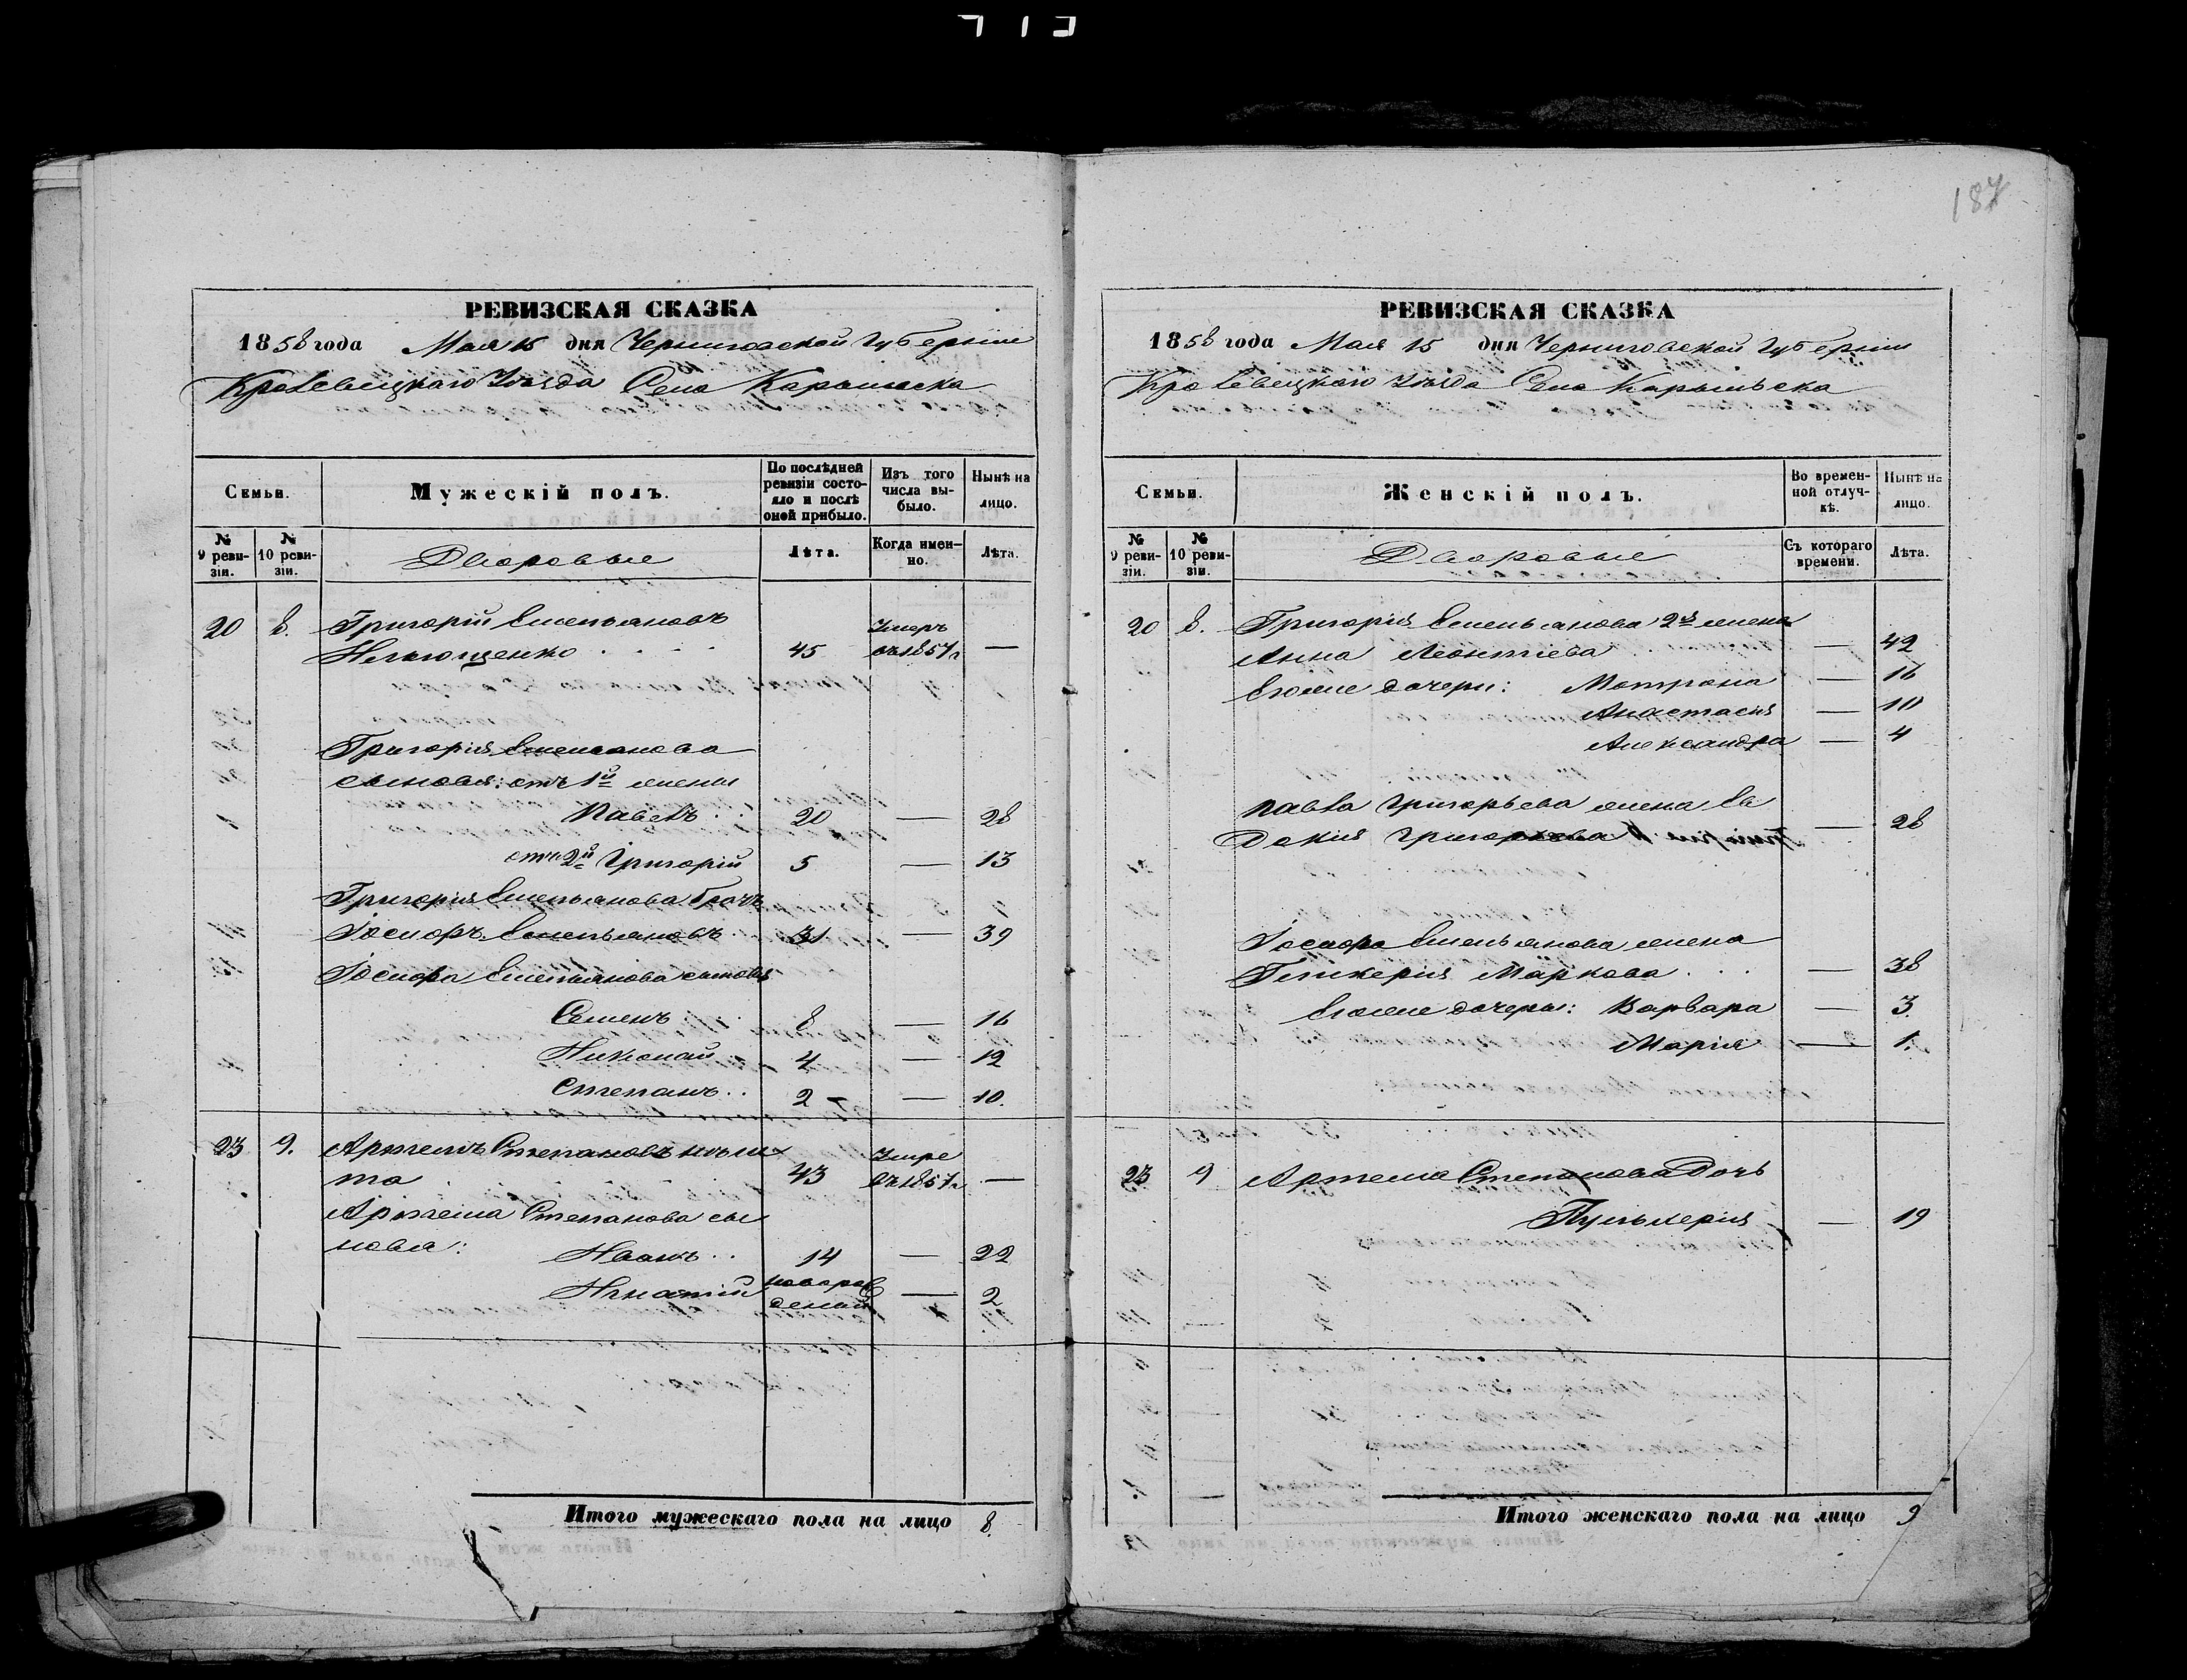 187
РЕВИЗСКАЯ СКАЗКА
1858 года Мая 15 дня Черниговской Губернии
Кролевецкаго Уѣзда Села Карыльска
Семьи.
Мужескій полъ.
По послѣдней ревизіи состояло и послѣ оной прибыло.
Изъ того числа выбыло.
Нынѣ на лицо.
№ 9 ревизіи.
№ 10 ревизіи.
Дворовые
Лѣта.
Когда именно.
Лѣта.
20 8. Григорій Емельяновъ Умеръ
45 въ 1857 г —
Григорія Емельянова
сыновья: отъ 1й жены
Павелъ 20 — 28
отъ 2й Григорій 5 — 13
Григорія Емельянова братъ
Іосифъ Емельяновъ 31 — 39
Іосифа Емельянова сыновья
Семенъ 8 — 16
Николай 4 — 12
Степанъ 2 — 10.
23 9. Артемъ Степановъ
та 43 въ 1857 г —
Артема Степанова сы
новья: Иванъ 14 — 22
Игнатій новорож
денный — 2
Итого мужескаго пола на лицо 8.
РЕВИЗСКАЯ СКАЗКА
1858 года Мая 15 дня Черниговской Губерніи
Кролевецкаго Уѣзда Села Карыльска
Семьи.
Женскій полъ.
Во временной отлучкѣ.
Нынѣ на лицо.
№ 9 ревизіи.
№ 10 ревизіи.
Дворовые
Съ котораго времени.
Лѣта.
20 8. Григорія Емельянова 2я жена
Анна Леонтіева — 42
Егоже дочери: Матрона — 16
Анастасія — 10
Александра — 4
Павла Григорьева жена Ев
докія Григорьева — 28
Іосифа Емельянова жена
Гликерія Маркова — 38
Егоже дочери: Варвара — 3
Марія — 1.
23 9 Артема Степанова Дочь
Пульхерія — 19
Итого женскаго пола на лицо 9